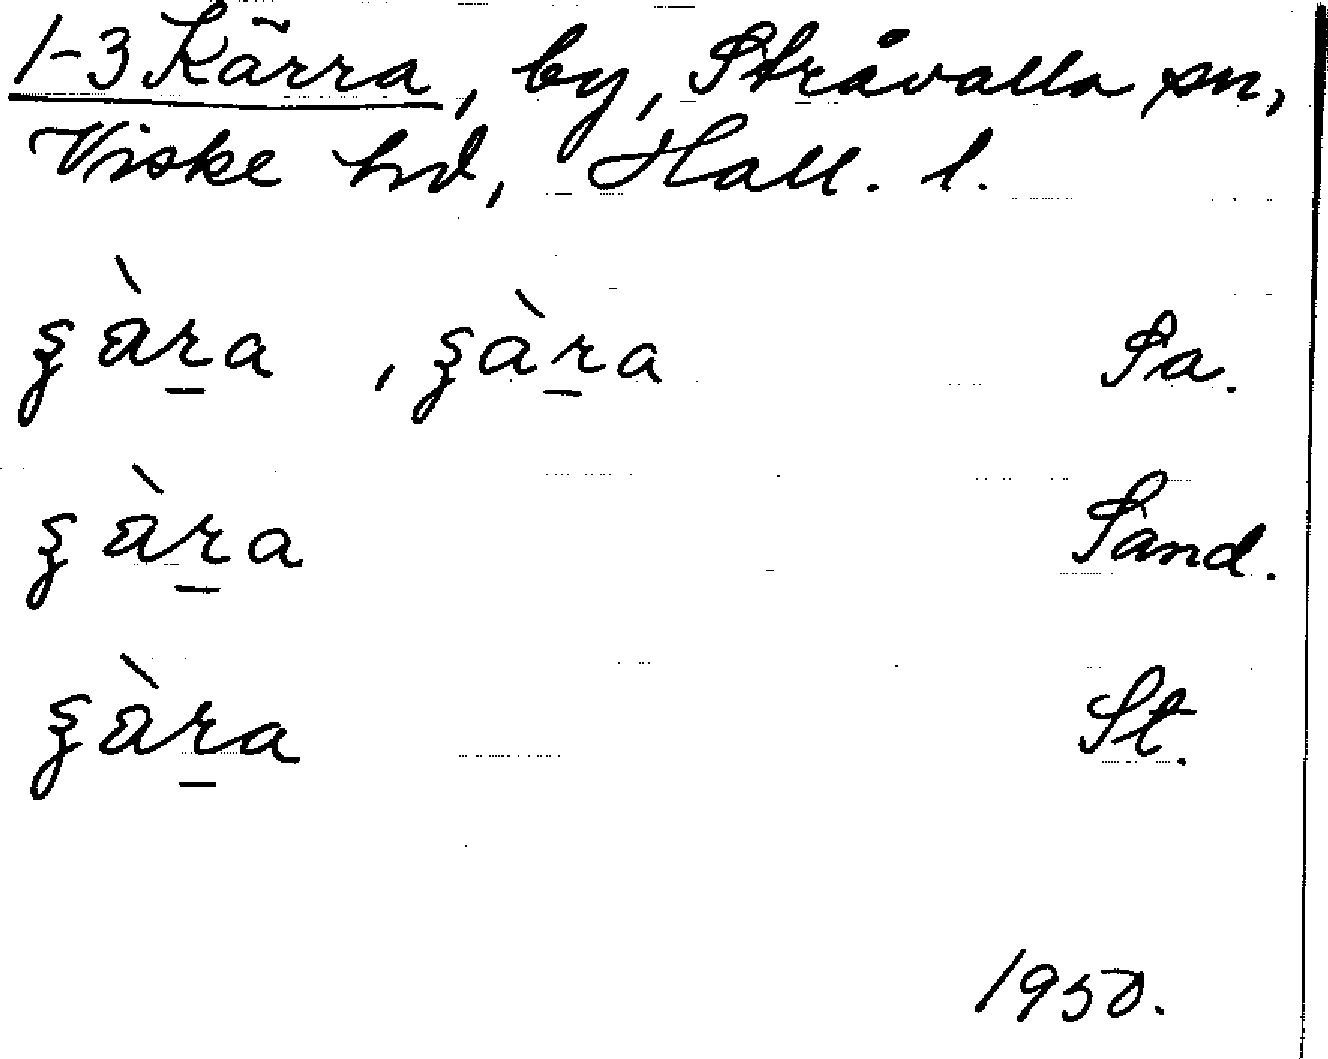 1-3 Kärra, by, Stråvalla sn,
Viske hd, Hall. l.
ʂàr̠a , ʂàr̠a Sa.
ʂàr̠a Sand.
ʂàr̠a St.
1950.